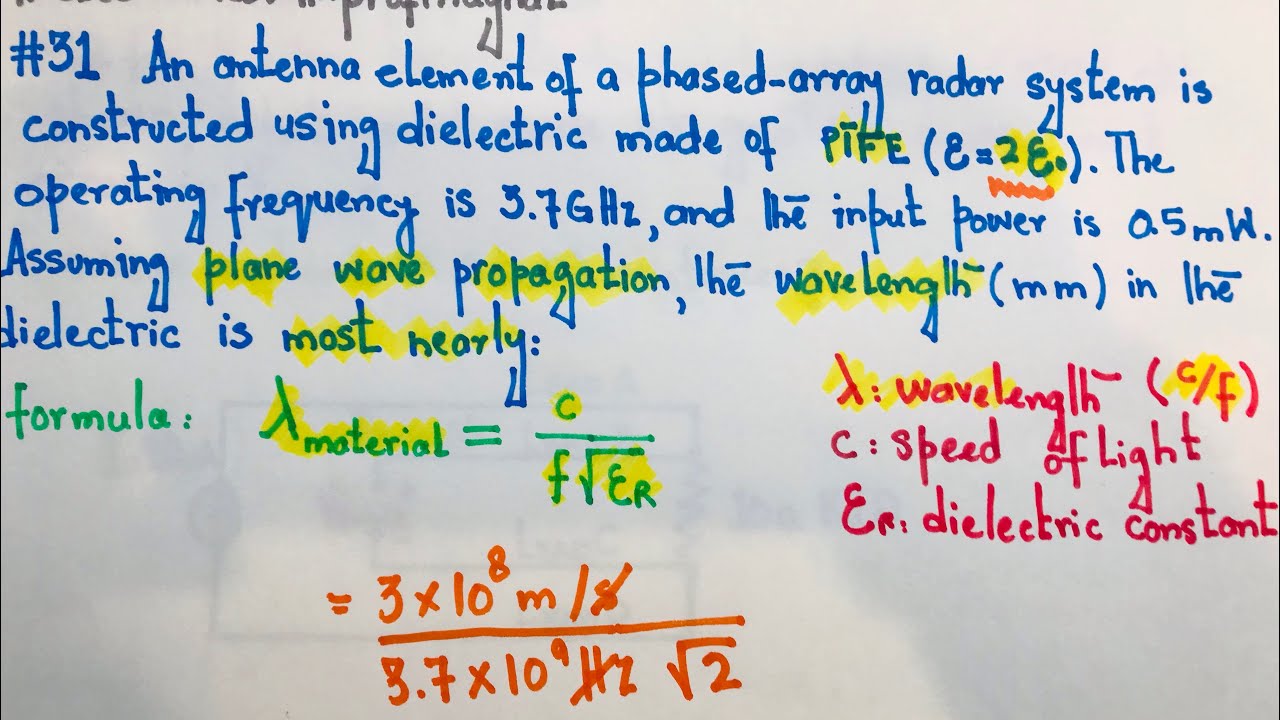 #31 An antenna element of a phased-array radar system is
constructed using dielectric made of PTFE (ε = 2ε₀). The
operating frequency is 3.7GHz, and the input power is 0.5mW.
Assuming plane wave propagation, the wavelength (mm) in the
dielectric is most nearly:
formula: λmaterial = c / f√εR
λ: wavelength (c/f)
c: speed of Light
εR: dielectric constant
= 3×10⁸ m/s
3.7×10⁹ Hz √2